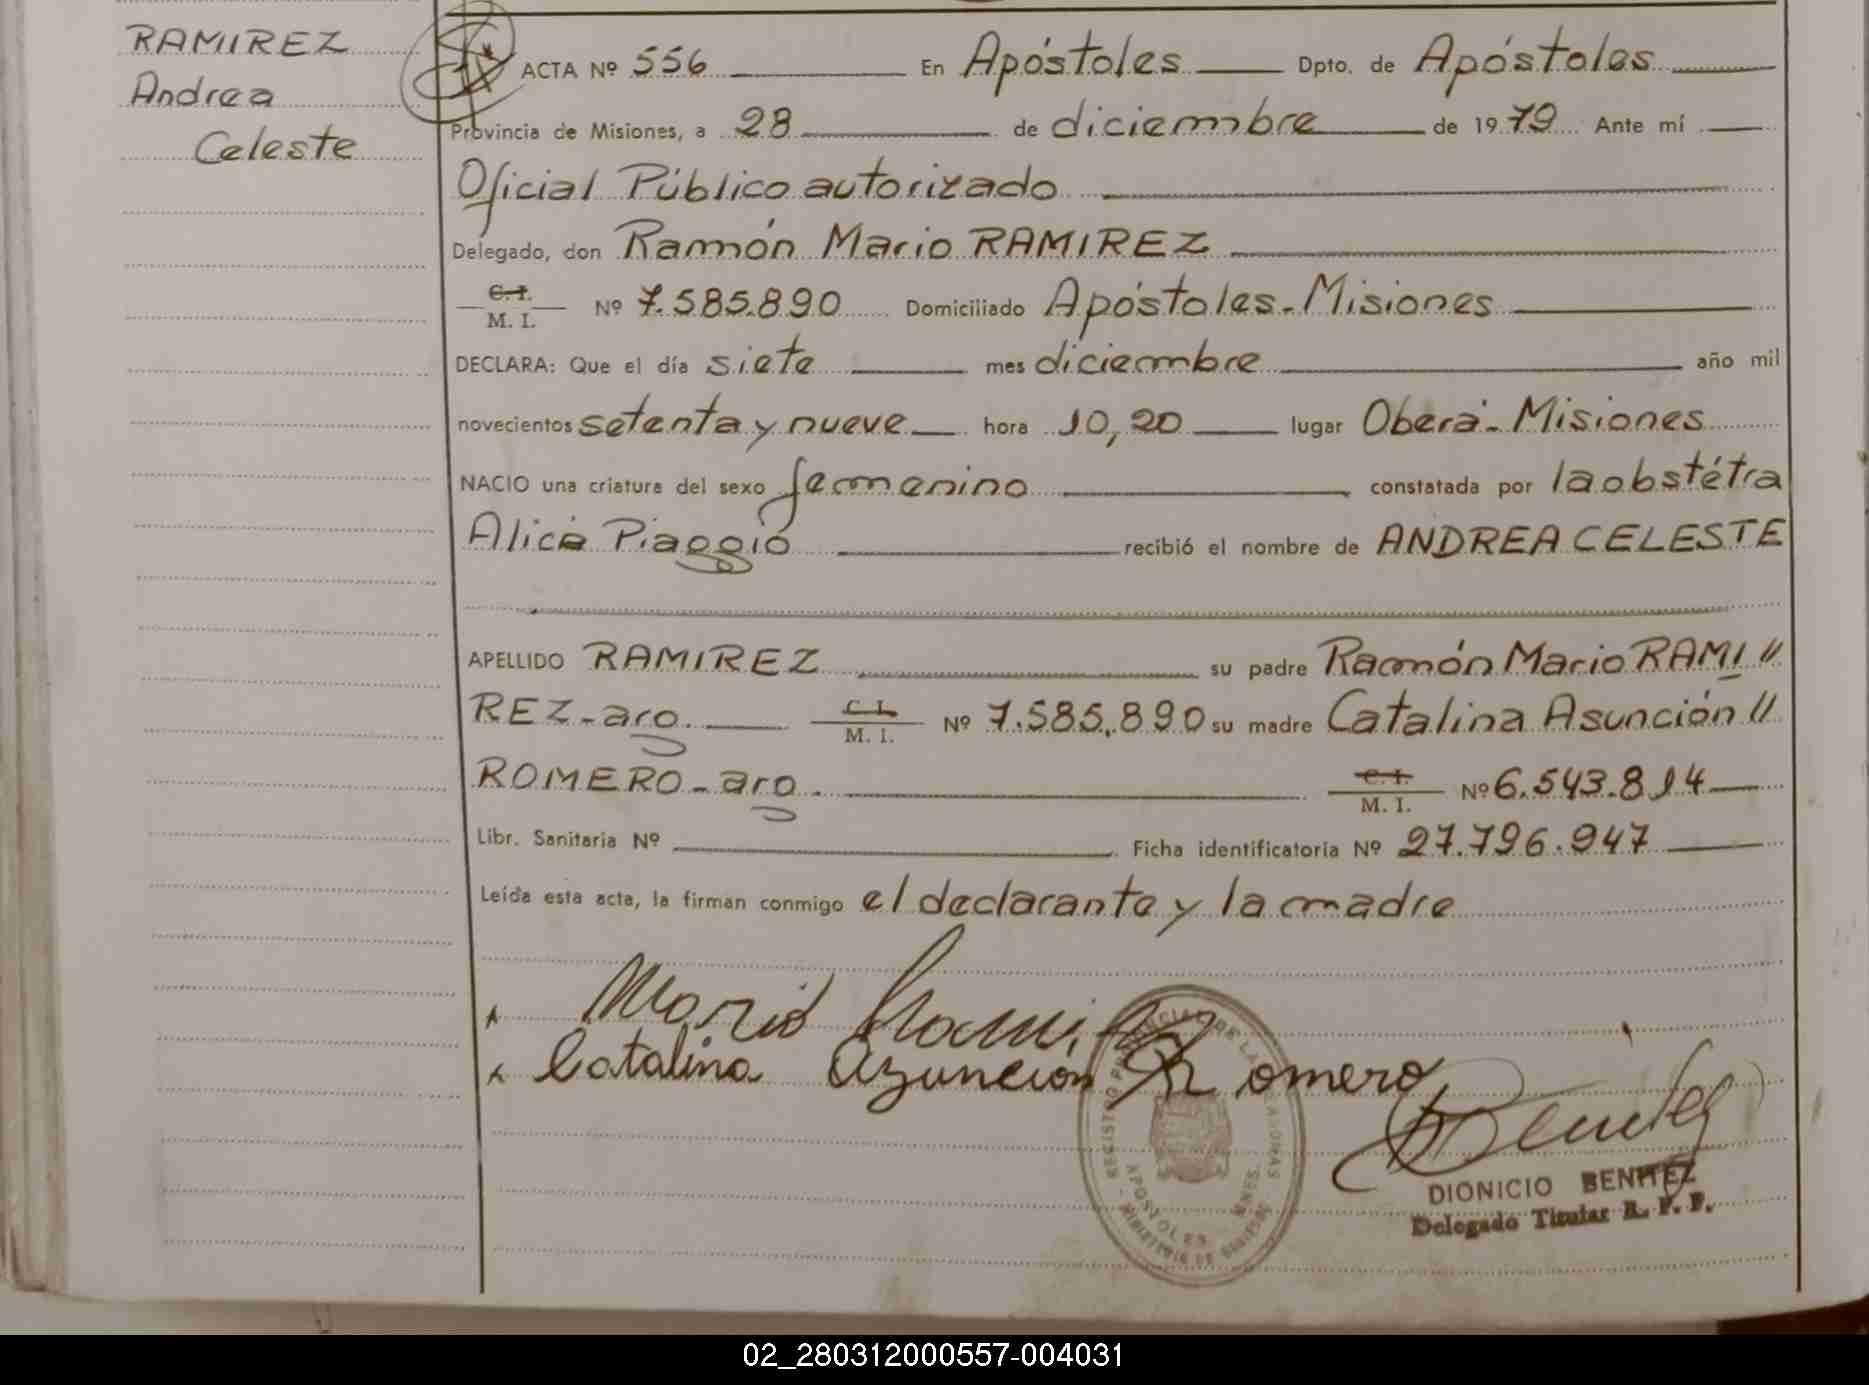 RAMIREZ
Andrea
Celeste
ACTA Nº 556 En Apóstoles Dpto. de Apóstoles
Provincia de Misiones, a 28 de diciembre de 1979 Ante mí
Oficial Público autorizado
Delegado, don Ramón Mario RAMIREZ
C. I.
M. I. Nº 7.585.890 Domiciliado Apóstoles-Misiones
DECLARA: Que el día siete mes diciembre año mil
novecientos setenta y nueve hora 10,20 lugar Oberá-Misiones
NACIO una criatura del sexo femenino constatada por la obstétra
Alicia Piaggio recibió el nombre de ANDREA CELESTE
APELLIDO RAMIREZ su padre Ramón Mario RAMI //
REZ-aro. C. I. M. I. Nº 7.585.890 su madre Catalina Asunción //
ROMERO-aro. C. I. M. I. Nº 6.543.814
Libr. Sanitaria Nº Ficha identificatoria Nº 27.796.947
Leída esta acta, la firman conmigo el declarante y la madre
Mario Ramirez
Catalina Azuncion Romero
REGISTRO PROVINCIAL DE LAS PERSONAS
APOSTOLES MNES.
MINISTERIO DE GOBIERNO
Benitez
DIONICIO BENITEZ
Delegado Titular R. P. P.
02_280312000557-004031